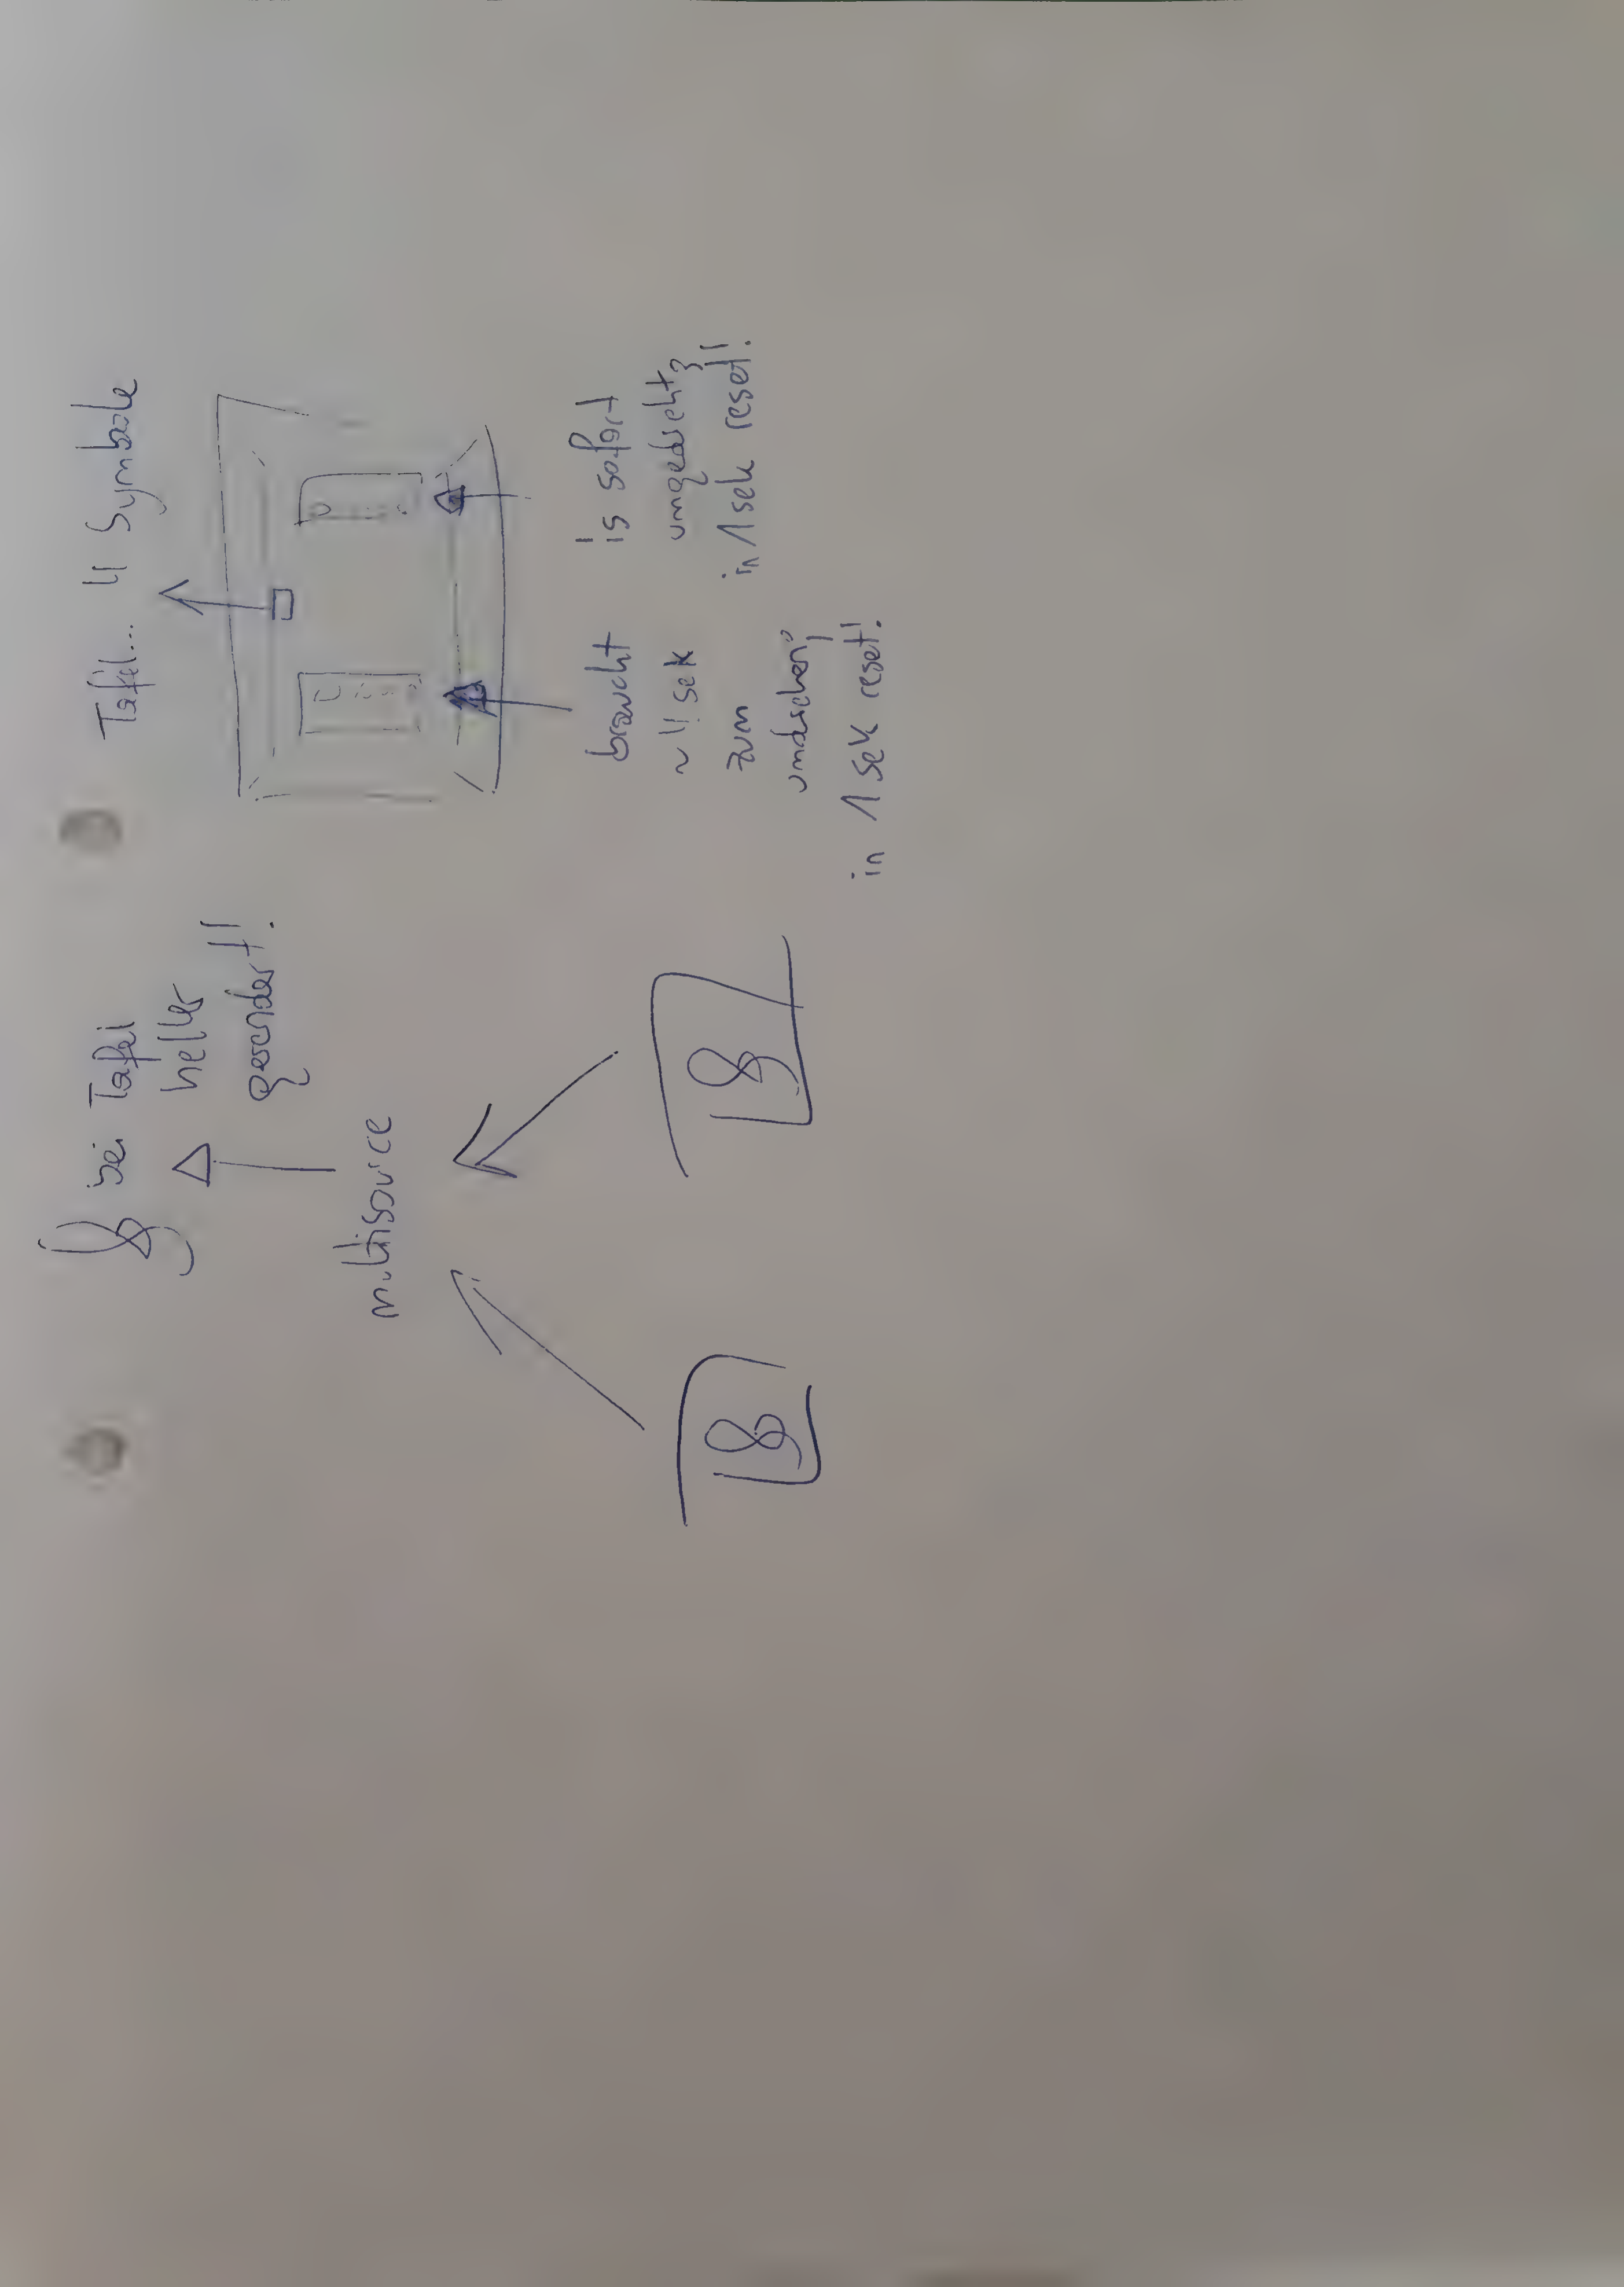 bei Tafel
heller
gerendert!!
multisource
Tafel... 4 Symbole
braucht
~ 4 sek
zum
umdrehen,
in 1 sek reset!
is sofort
umgedreht,
in 1 sek reset!!